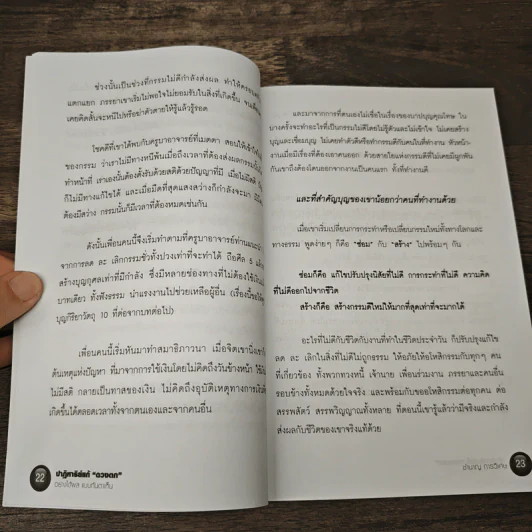 ช่วงนั้นเป็นช่วงที่กรรมไม่ดีกำลังส่งผล ทำให้ครอบครัว
แตกแยก ภรรยาเขาเริ่มไม่พอใจไม่ยอมรับในสิ่งที่เกิดขึ้น
เคยคิดสั้นจะหนีไปหรือฆ่าตัวตายให้รู้แล้วรู้รอด
โชคดีที่เขาได้พบกับครูบาอาจารย์ที่เมตตา สอนให้เข้าใจ
ของกรรม ว่าเราไม่มีทางหนีพ้นเมื่อถึงเวลาที่ต้องส่งผลกรรมนั้น
ทำหน้าที่ เราเองนั้นต้องตั้งรับด้วยสติด้วยปัญญาที่มี เมื่อไม่มีสติ
ก็ไม่มีทางแก้ไขได้ และเมื่อมืดที่สุดแสงสว่างก็กำลังจะมา
ต้องมีสว่าง กรรมนั้นก็มีเวลาที่ต้องหมดเช่นกัน
ดังนั้นเพื่อนคนนี้จึงเริ่มทำตามที่ครูบาอาจารย์ท่านแนะนำ
จากการลด ละ เลิกกรรมชั่วทั้งปวงเท่าที่จะทำได้ ถือศีล
สร้างบุญกุศลเท่าที่มีกำลัง ซึ่งมีหลายช่องทางที่ไม่ต้องใช้เงิน
บาทเดียว ทั้งฟังธรรม นำแรงงานไปช่วยเหลือผู้อื่น (เรื่องนี้ขอให้
บุญกิริยาวัตถุ 10 ที่ต่อจากบทต่อไป)
เพื่อนคนนี้เริ่มหันมาทำสมาธิภาวนา เมื่อจิตเขานิ่ง
ต้นเหตุแห่งปัญหา ที่มาจากการใช้เงินโดยไม่คิดถึงวันข้างหน้า
ไม่มีสติ กลายเป็นทาสของเงิน ไม่คิดถึงอุบัติเหตุทางการเงิน
เกิดขึ้นได้ตลอดเวลาทั้งจากตนเองและจากคนอื่น
22 ปาฏิหาริย์แก้ "ดวงตก"
อย่างได้ผล แบบทันตาเห็น
และมาจากการที่ตนเองไม่เชื่อในเรื่องของบาปบุญคุณโทษ ใน
บางครั้งจะทำอะไรที่เป็นกรรมไม่ดีโดยไม่รู้ตัวและไม่เข้าใจ ไม่เคยสร้าง
บุญและเชื่อมบุญ ไม่เคยทำตัวดีหรือทำกรรมดีกับคนในที่ทำงาน หัวหน้า
งานเมื่อมีเรื่องที่ต้องเอาคนออก ด้วยสายใยแห่งกรรมดีที่ไม่เคยมีผูกพัน
กันเขาถึงต้องโดนออกจากงานเป็นคนแรก ทั้งที่ทำงานดี
และที่สำคัญบุญของเขาน้อยกว่าคนที่ทำงานด้วย
เมื่อเขาเริ่มเปลี่ยนการกระทำหรือเปลี่ยนกรรมใหม่ทั้งทางโลกและ
ทางธรรม พูดง่ายๆ ก็คือ "ซ่อม" กับ "สร้าง" ไปพร้อมๆ กัน
ซ่อมก็คือ แก้ไขปรับปรุงนิสัยที่ไม่ดี การกระทำที่ไม่ดี ความคิด
ที่ไม่ดีออกไปจากชีวิต
สร้างก็คือ สร้างกรรมดีใหม่ให้มากที่สุดเท่าที่จะมากได้
อะไรที่ไม่ดีกับชีวิตกับงานที่ทำในชีวิตประจำวัน ก็ปรับปรุงแก้ไข
ลด ละ เลิกในสิ่งที่ไม่ดีไม่ถูกธรรม ให้อภัยให้อโหสิกรรมกับทุกๆ คน
ที่เกี่ยวข้อง ทั้งพวกทวงหนี้ เจ้านาย เพื่อนร่วมงาน ภรรยาและคนอื่น
รอบข้างทั้งหมดด้วยใจจริง และพร้อมกับขออโหสิกรรมต่อทุกคน ต่อ
สรรพสัตว์ สรรพวิญญาณทั้งหลาย ที่ตอนนี้เขารู้แล้วว่ามีจริงและกำลัง
ส่งผลกับชีวิตของเขาจริงแท้ด้วย
23